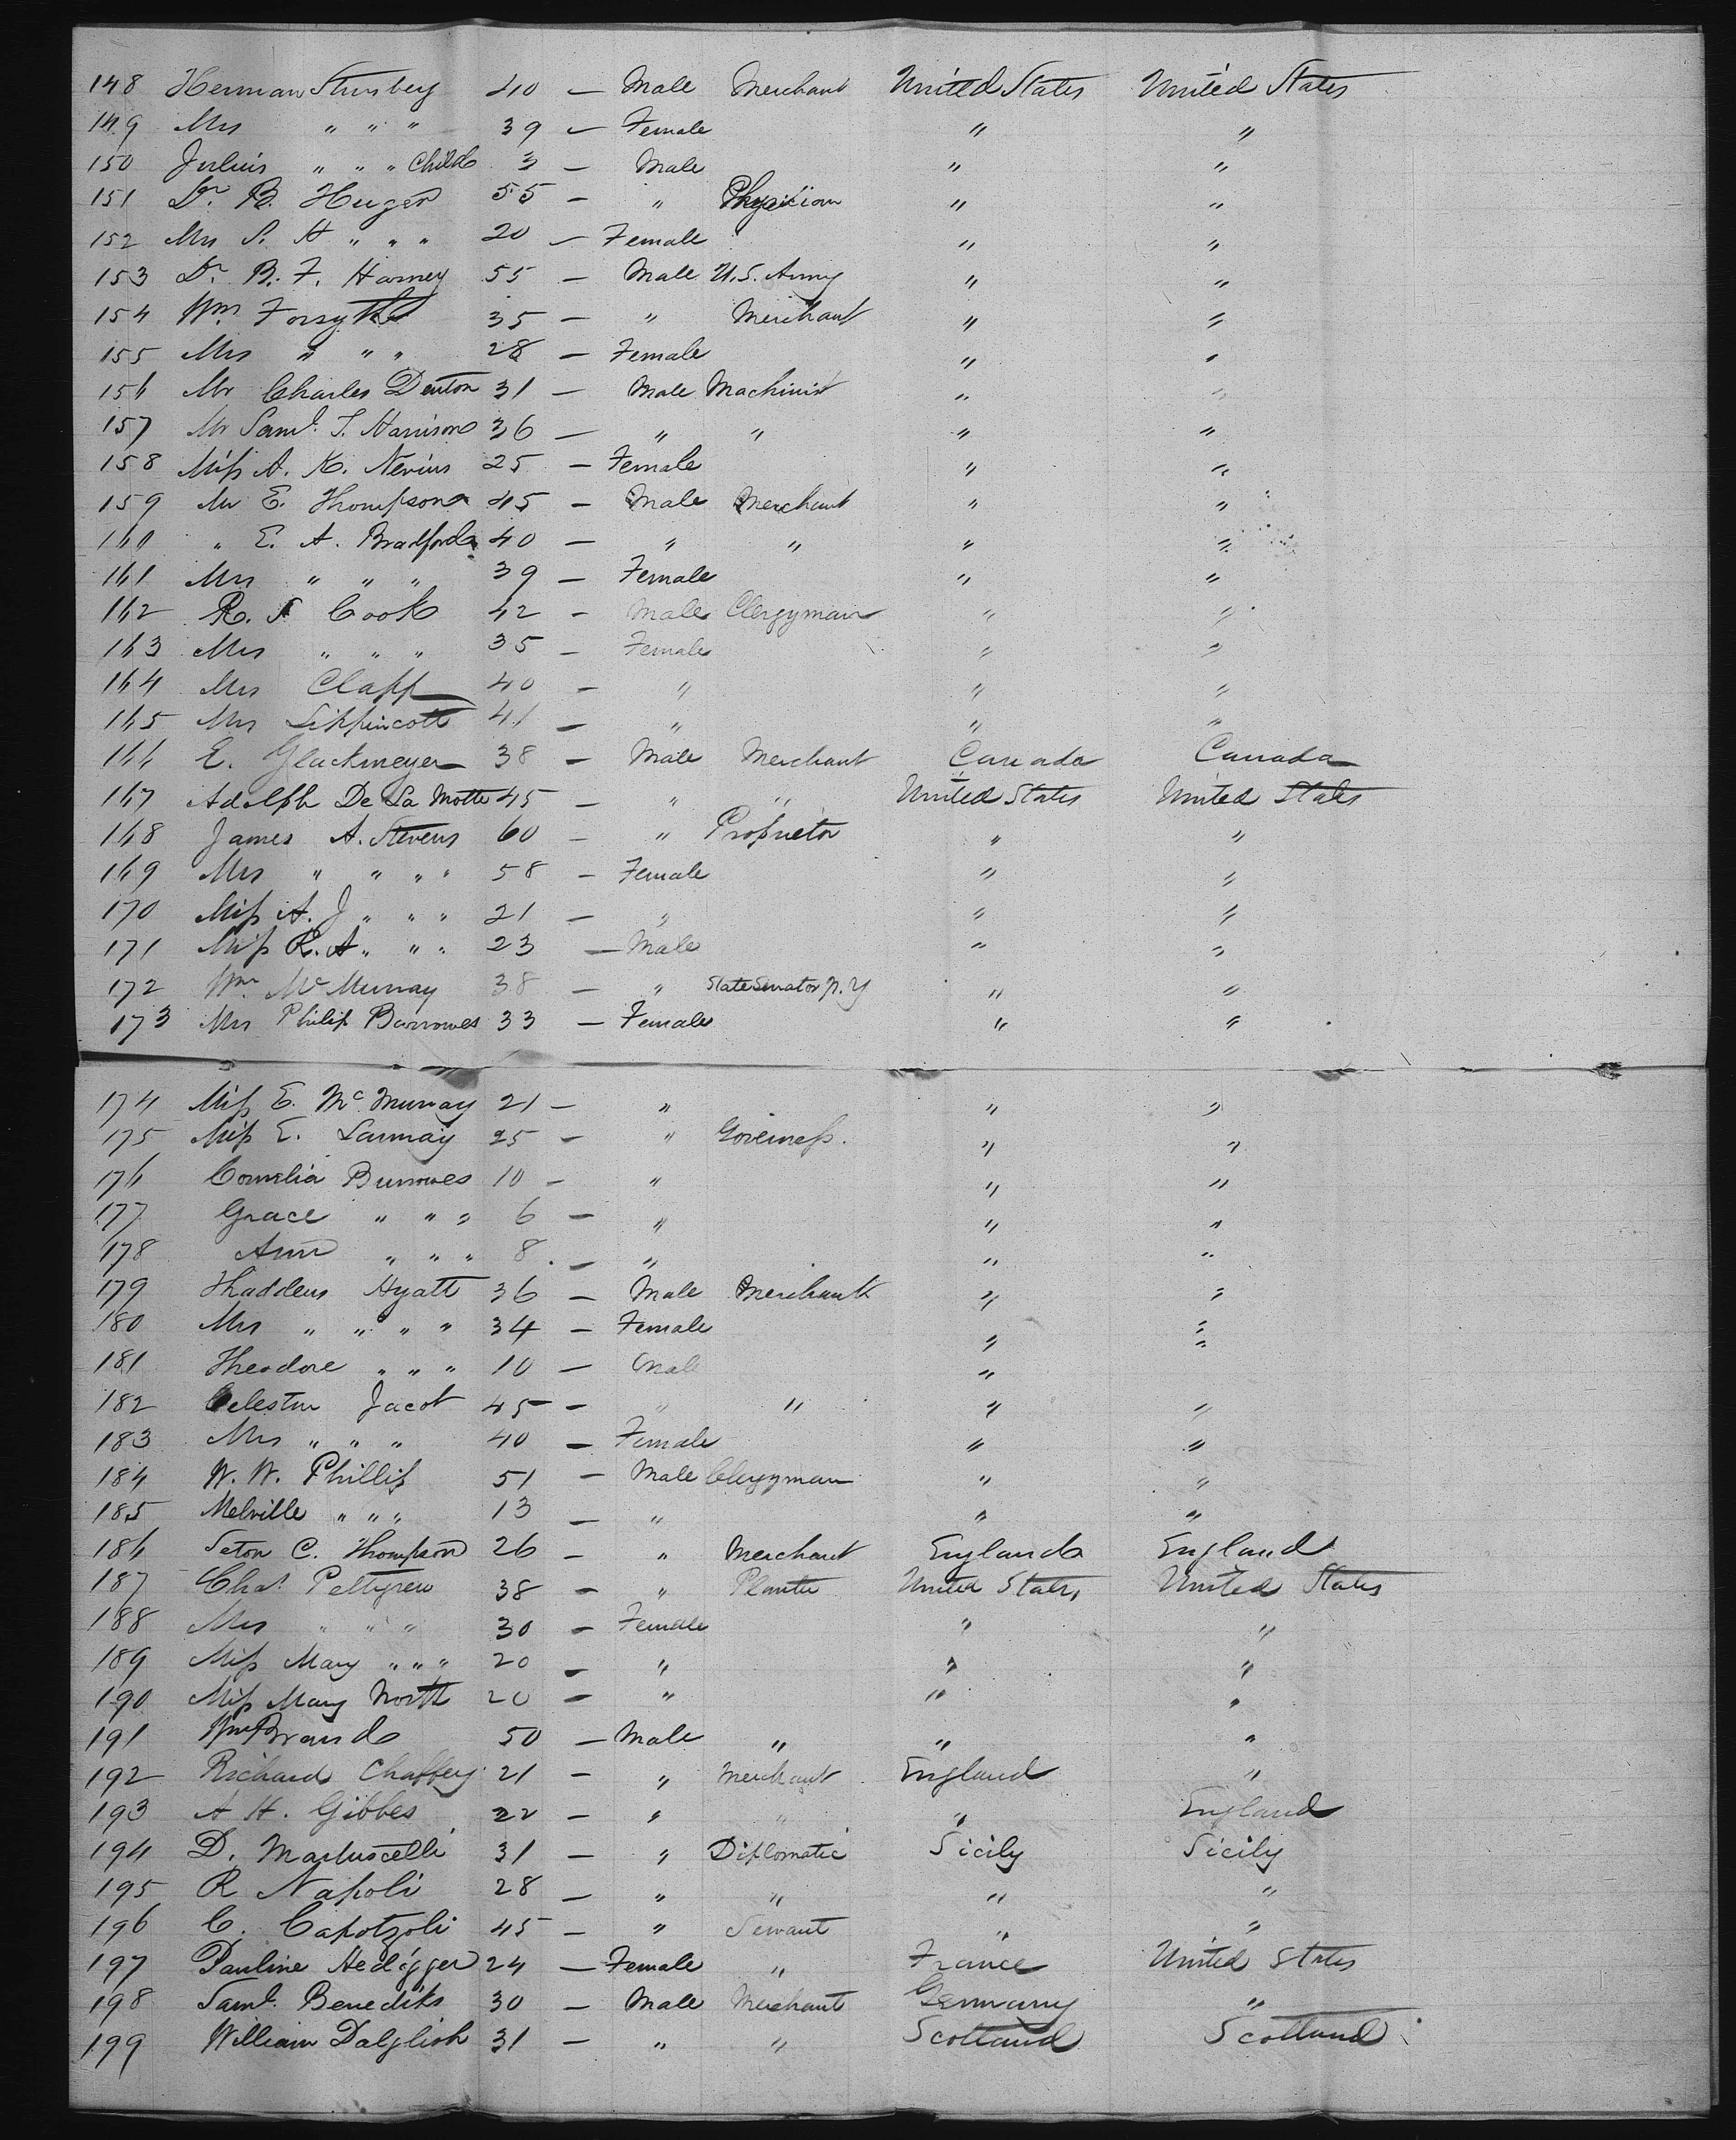 148 Herman Stursberg 40 — Male Merchant United States United States
149 Mrs " " " 39 — Female " "
150 Julius " " " Child 3 — Male " "
151 Dr. B. Huger 55 — " Physician " "
152 Mrs S. H " " " 20 — Female " "
153 Dr. B. F. Harney 55 — Male U.S. Army " "
154 Wm. Forsyth 35 — " Merchant " "
155 Mrs " " " 28 — Female " "
156 Mr Charles Denton 31 — Male Machinist " "
157 Mr Saml. T. Harrison 36 — " " " "
158 Miss A. K. Nevius 25 — Female " "
159 Mr E. Thompson 45 — Male Merchant " "
160 " E. A. Bradford 40 — " " " "
161 Mrs " " " 39 — Female " "
162 R. S Cook 42 — Male Clergyman " "
163 Mrs " " " 35 — Female " "
164 Mrs Clapp 40 — " " "
165 Mrs Lippincott 41 — " " "
166 E. Glackmeyer 38 — Male Merchant Canada Canada
167 Adolph De La Motte 45 — " " United States United States
168 James A. Stevens 60 — " Proprietor " "
169 Mrs " " " " 58 — Female " "
170 Miss A. J " " " 21 — " " "
171 Miss R. A " " " 23 — Male " "
172 Wm. McMurray 38 — " State Senator N.Y " "
173 Mrs Philip Burrowes 33 — Female " "
174 Miss E. McMurray 21 — " " "
175 Miss E. Launay 25 — " Governess. " "
176 Cornelia Burrowes 10 — " " "
177 Grace " " " 6 — " " "
178 Ann " " " 8. — " " "
179 Thaddeus Hyatt 36 — Male Merchant " "
180 Mrs " " " " 34 — Female " "
181 Theodore " " " 10 — Male " "
182 Celestin Jacot 45 — " " " "
183 Mrs " " " 40 — Female " "
184 W. W. Phillips 51 — Male Clergyman " "
185 Melville " " " 13 — " " "
186 Seton C. Thompson 26 — " Merchant England England
187 Chas. Pettigrew 38 — " Planter United States United States
188 Mrs " " " 30 — Female " "
189 Miss Mary " " " 20 — " " "
190 Miss Mary North 20 — " " "
191 Wm Brand 50 — Male " " "
192 Richard Chaffery 21 — " Merchant England "
193 A H. Gibbes 22 — " " " England
194 D. Martuscelli 31 — " Diplomatic Sicily Sicily
195 R Napoli 28 — " " " "
196 C. Capotzoli 45 — " Servant " "
197 Pauline Hedigger 24 — Female " France United States
198 Saml. Benediks 30 — Male Merchant Germany "
199 William Dalglish 31 — " " Scotland Scotland